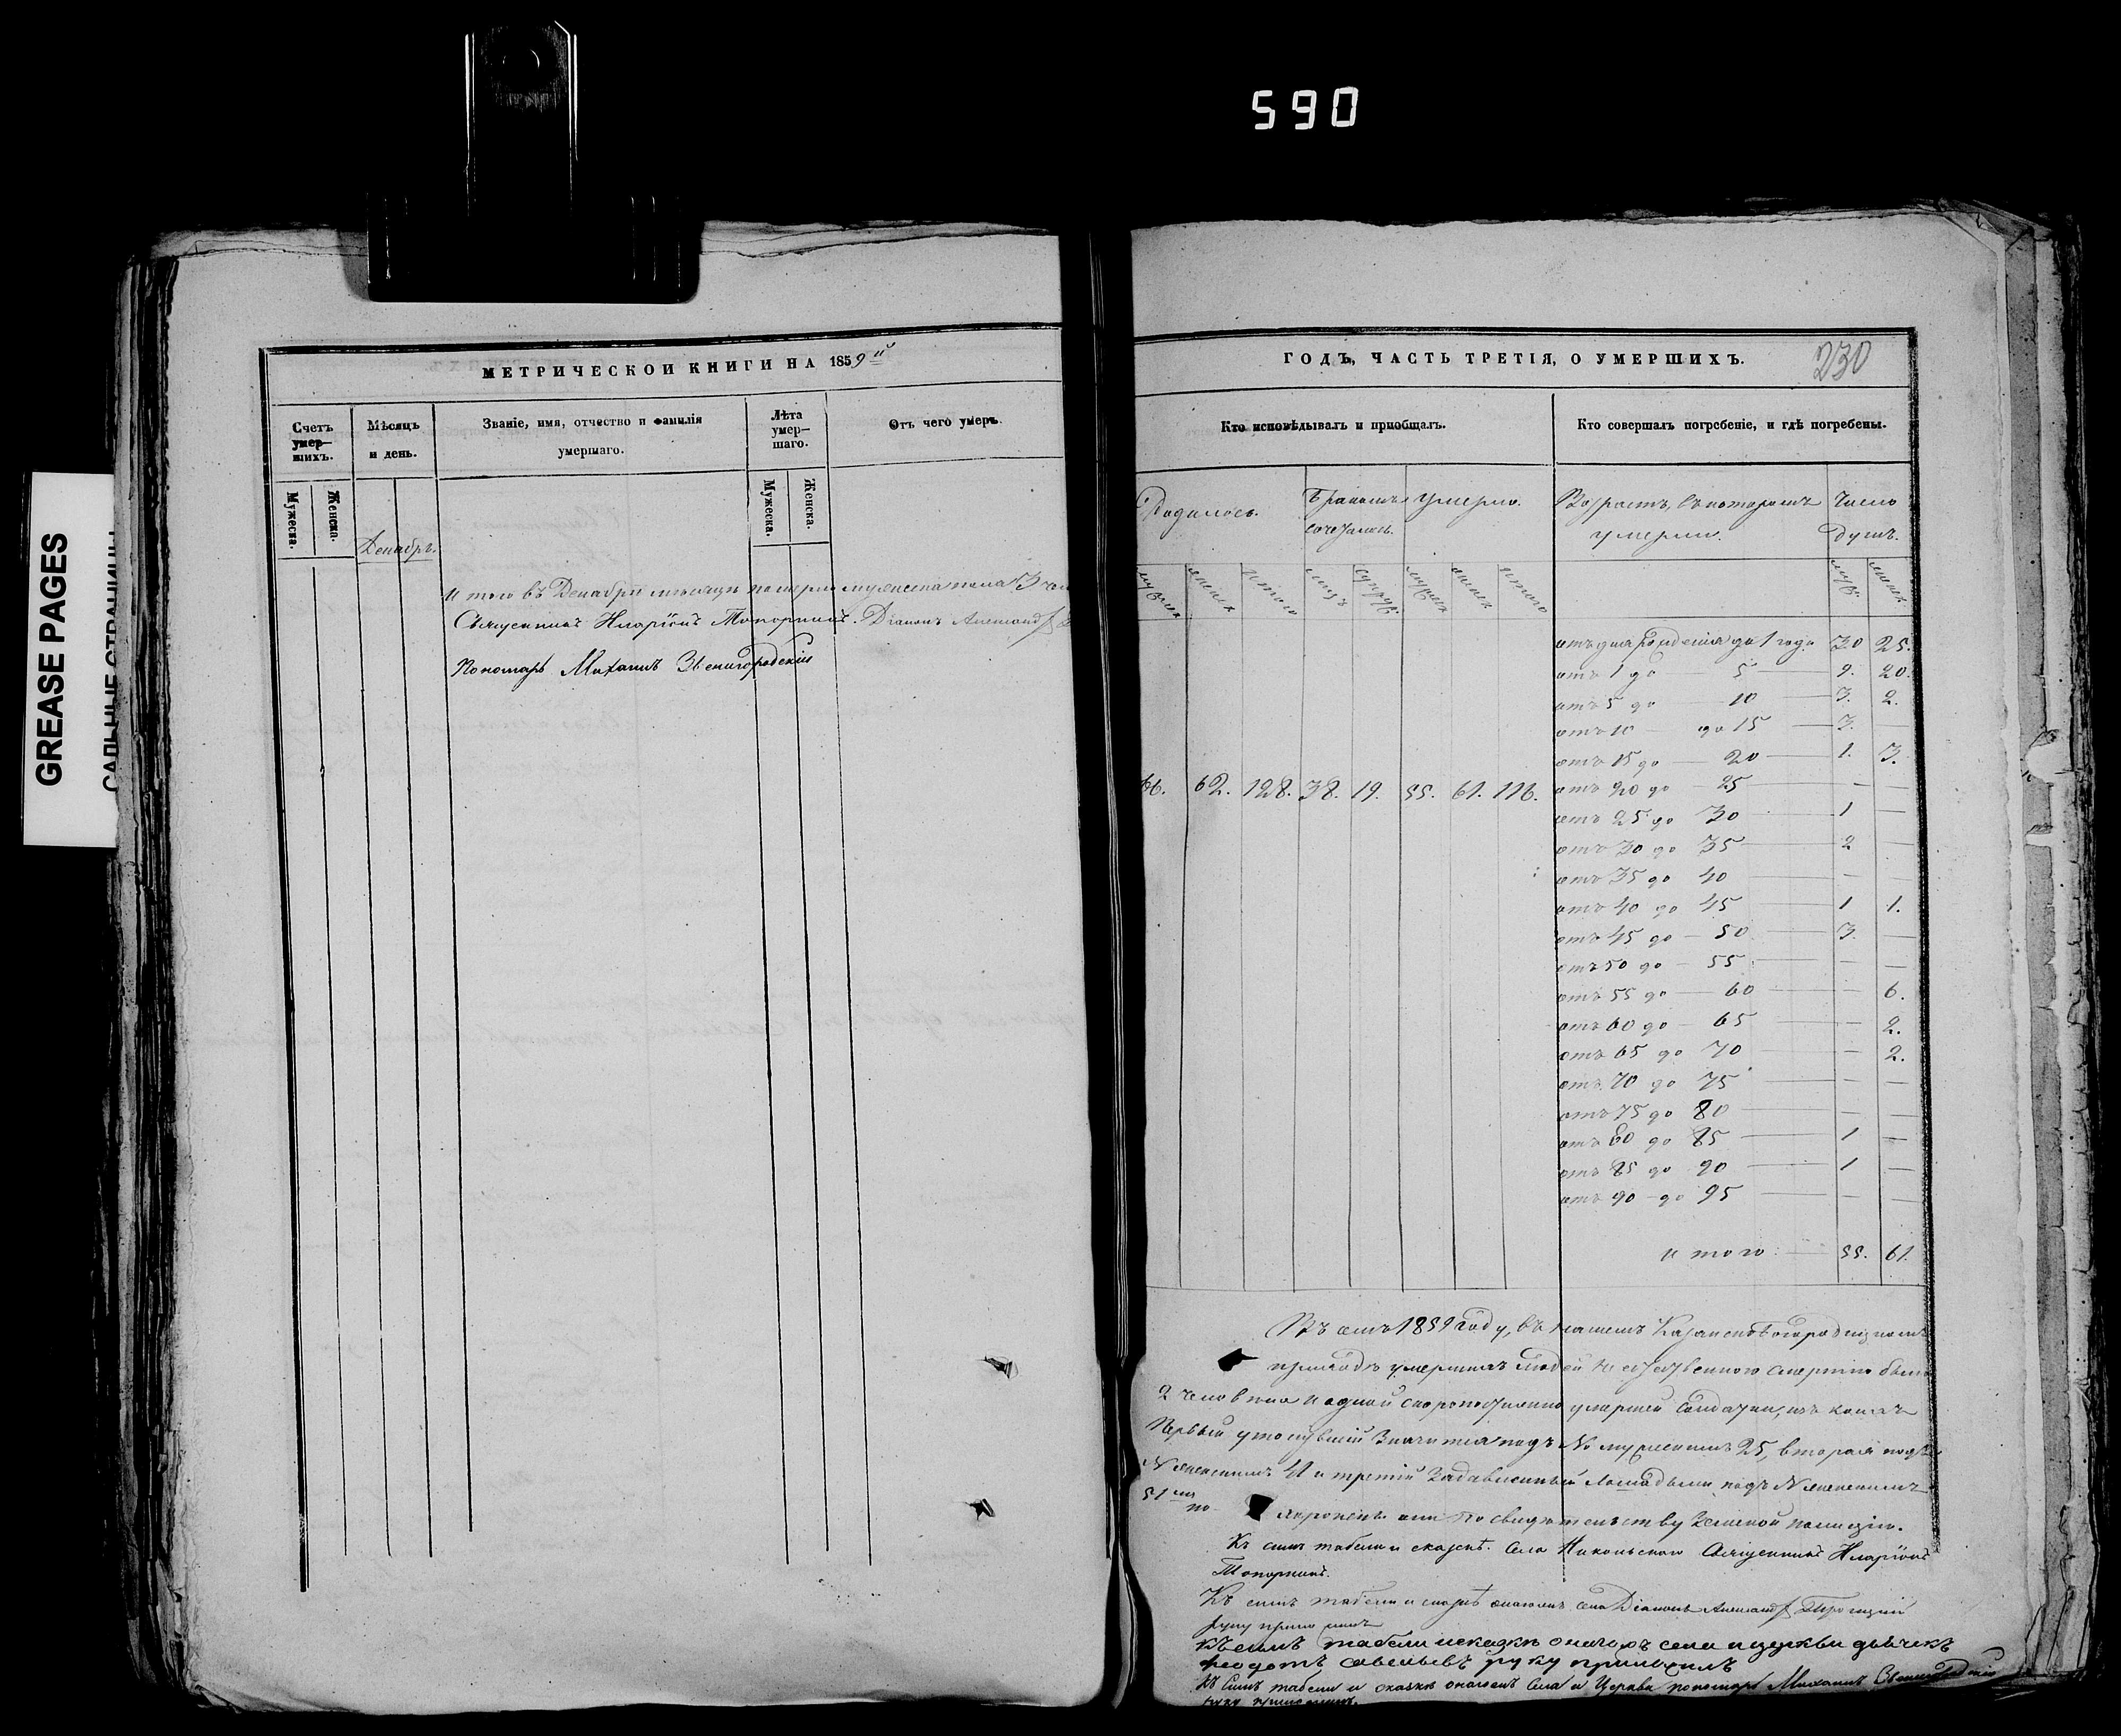 590
GREASE PAGES
МЕТРИЧЕСКОЙ КНИГИ НА 1859й
Счетъ умер-шихъ.
Мѣсяцъ и день.
Званіе, имя, отчество и фамилія умершаго.
Лѣта умер-шаго.
Отъ чего умеръ.
Мужеска.
Женска.
Мужеска.
Женска.
Декабрь.
и того въ Декабрѣ мѣсяцѣ померло мужеска пола 3
Священникъ Иларіонъ Топорнинъ. Diаконъ
Пономарь Михаилъ Звенигородскій
ГОДЪ, ЧАСТЬ ТРЕТІЯ, О УМЕРШИХЪ.
230
Кто исповѣдывалъ и пріобщалъ.
Кто совершалъ погребеніе, и гдѣ погребены.
Родилось.
Бракомъ сочеталось.
Умерло.
Возрастъ, въ которомъ умерли.
Число душъ.
мужск женск итого лицъ супруж мужск женск итого
муж. женск
66. 62. 128. 38. 19. 55. 61. 116.
отъ дня рожденія до 1 года 30 25.
отъ 1 до 5 9. 20.
отъ 5 до 10 3. 2.
отъ 10 до 15 3. —
отъ 15 до 20 1. 3.
отъ 20 до 25 — —
отъ 25 до 30 1 —
отъ 30 до 35 2 —
отъ 35 до 40 — —
отъ 40 до 45 1 1.
отъ 45 до 50 3. —
отъ 50 до 55 — —
отъ 55 до 60 — 6.
отъ 60 до 65 — 2.
отъ 65 до 70 — 2.
отъ 70 до 75 — —
отъ 75 до 80 — —
отъ 80 до 85 1 —
отъ 85 до 90 1 —
отъ 90 до 95 — —
и того 55. 61.
Въ семъ 1859 году, въ нашемъ
приходѣ умершихъ людей неестественною смертію было
2 человѣка и одной скоропостижно умершей солдатки, изъ коихъ
Первый утонувшій значится подъ № мужескимъ 25, вторая подъ
№ женскимъ 41 и третій задавленный лошадьми подъ № женскимъ
51
по свидѣтельству Земской полиціи.
Къ симъ табели и сказкѣ. Села Никольскаго Священникъ Иларіонъ
Топорнинъ.
Къ симъ табели и сказкѣ онагожъ села Diаконъ Троицкій
руку приложилъ
Къ симъ табели и сказкѣ онагожъ села и церкви дьячекъ
Феодотъ Савельевъ руку приложилъ
Къ симъ табели и сказкѣ онагожъ села и Церкви пономарь Михаилъ Звенигородскій
руку приложилъ.